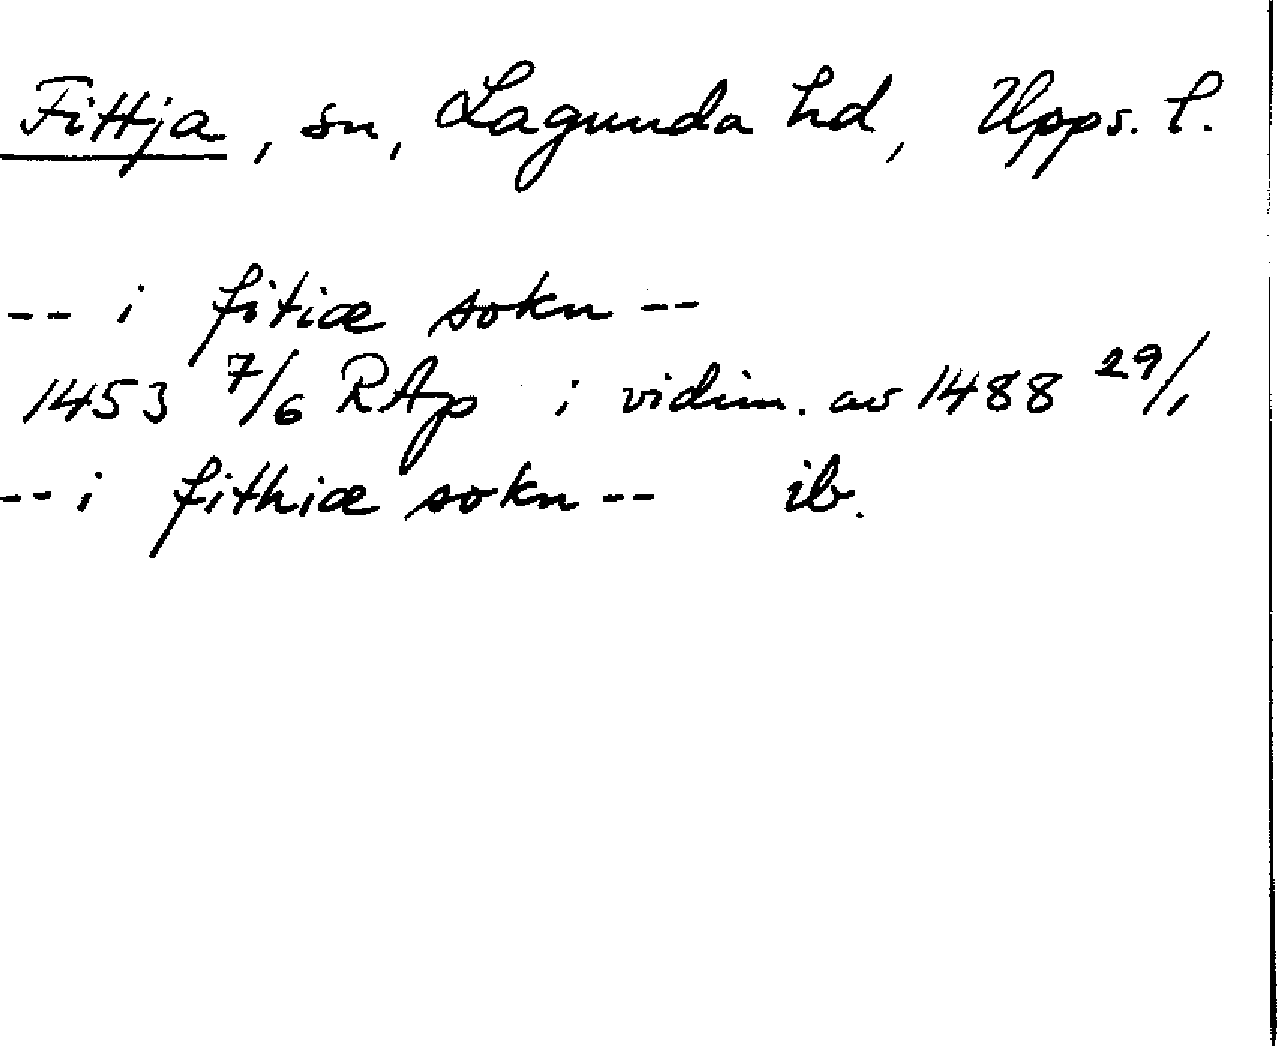 Fittja, sn, Lagunda hd, Upps. l.
-- i fitiæ sokn --
1453 7/6 RAp i vidim. av 1488 29/1
-- i fithiæ sokn -- ib.